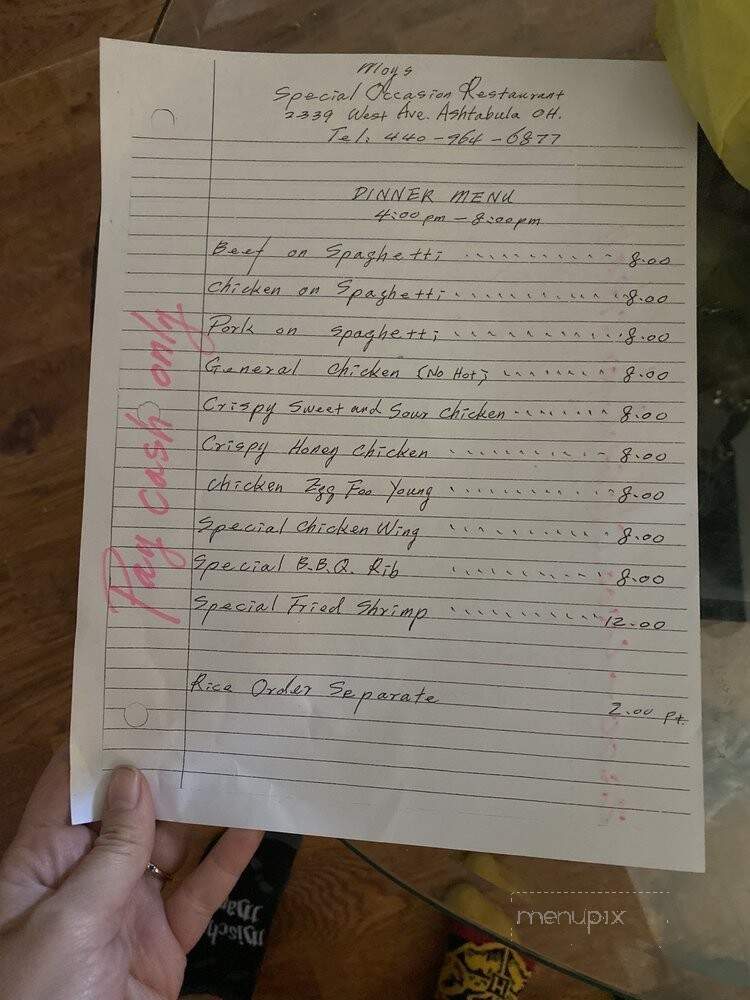 Moys
Special Occasion Restaurant
2339 West Ave. Ashtabula OH.
Tel: 440-964-6877
DINNER MENU
4:00 pm - 8:00 pm
Beef on Spaghetti .......... 8.00
Chicken on Spaghetti .......... 8.00
Pork on Spaghetti .......... 8.00
General Chicken (No Hot) .......... 8.00
Crispy Sweet and Sour Chicken .......... 8.00
Crispy Honey Chicken .......... 8.00
Chicken Egg Foo Young .......... 8.00
Special Chicken Wing .......... 8.00
Special B.B.Q. Rib .......... 8.00
Special Fried Shrimp .......... 12.00
Rice Order Separate 2.00 pt.
Pay cash only
menupix